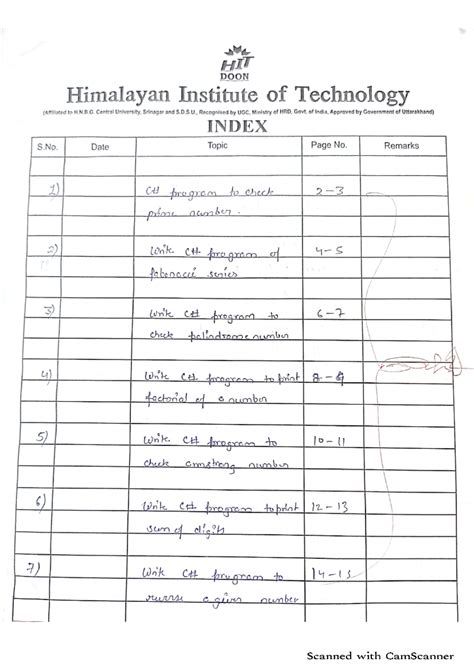 HIT
DOON
Himalayan Institute of Technology
(Affiliated to H.N.B.G. Central University, Srinagar and S.D.S.U., Recognised by UGC, Ministry of HRD, Govt. of India, Approved by Government of Uttarakhand)
INDEX
S.No. Date Topic Page No. Remarks
1) C# program to check 2-3
prime number.
2) Write C# program of 4-5
fabonacci series
3) Write C# program to 6-7
check palindrome number
4) Write C# program to print 8-9
factorial of a number
5) Write C# program to 10-11
check armstrong number
6) Write C# program to print 12-13
sum of digits
7) Write C# program to 14-15
reverse a given number
Scanned with CamScanner